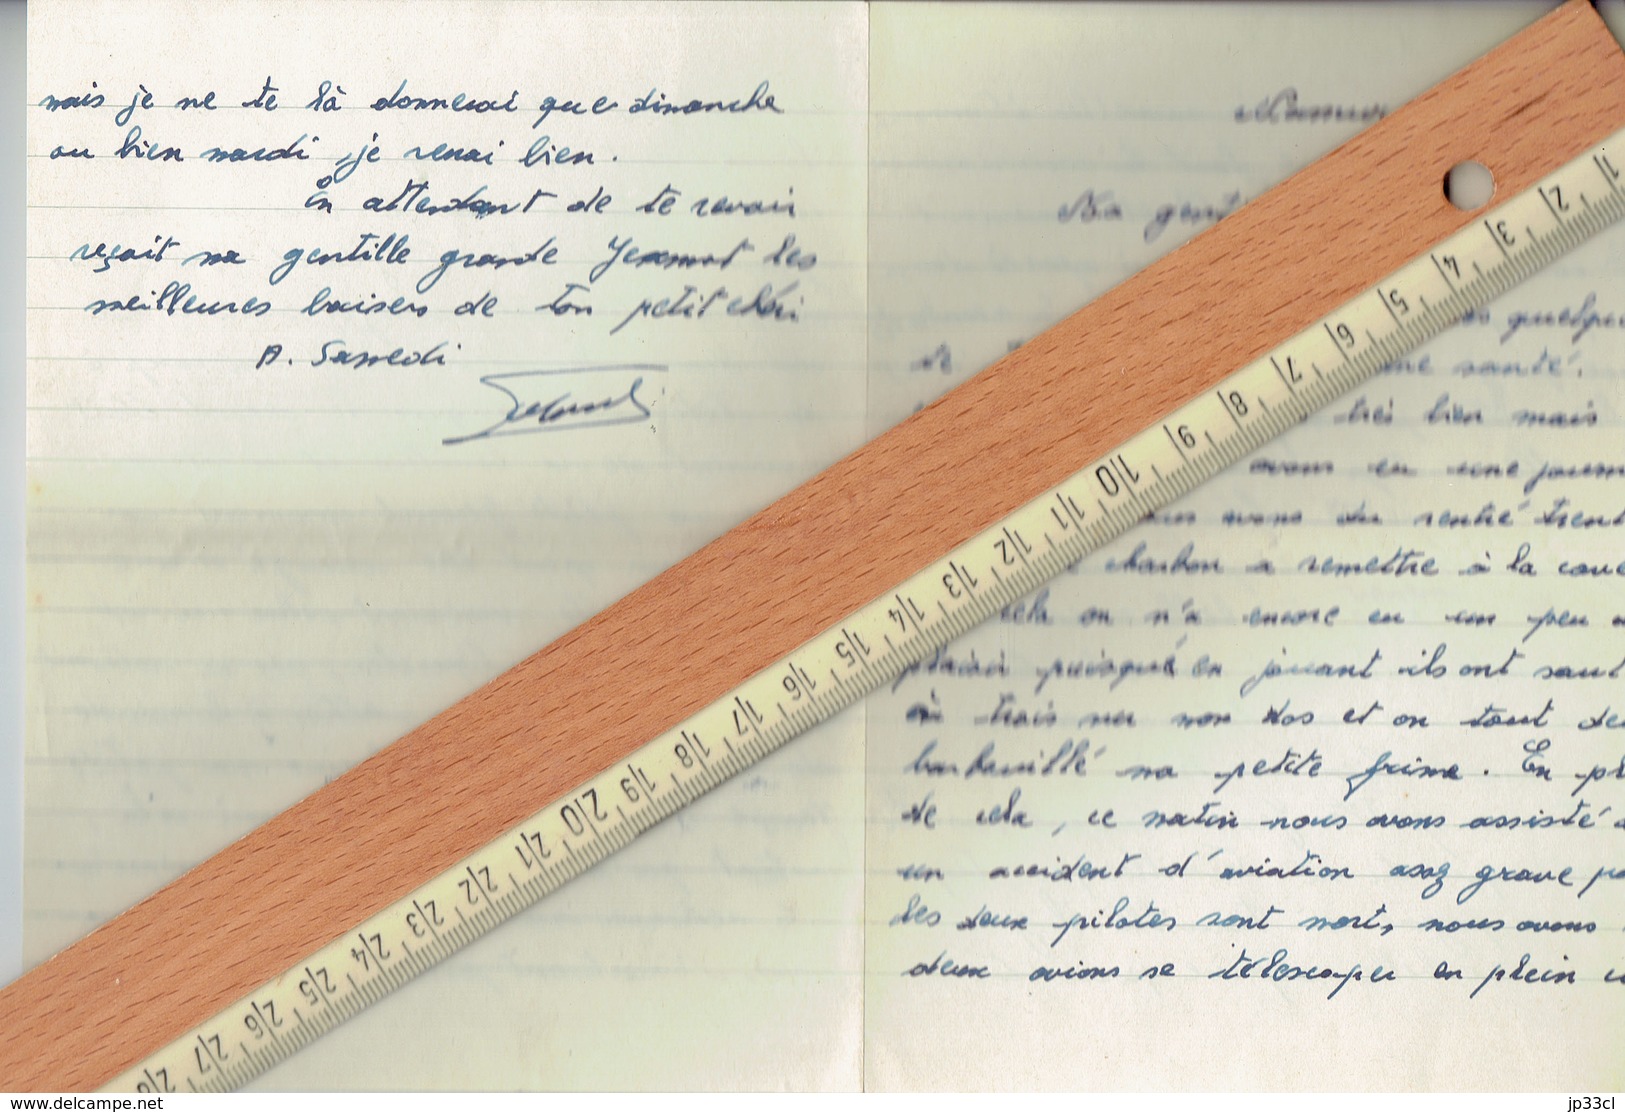 mais je ne te là donnerai que dimanche
ou bien mardi, je verrai bien.
En attendant de te revoir
reçoit ma gentille grande les
meilleures baisers de ton petit chéri
A. Samedi
Namur
Ma genti
quelqu
de
santé.
très bien mais
avons eu une journ
avons du rentré trent
charbon a remettre à la cave
cela on n'a encore eu un peu
plaisir puisqué en jouant ils ont saut
à trois sur mon dos et on tout de
barbouillé ma petite frime. En pl
de cela, ce matin nous avons assisté
un accident d'aviation assez grave pa
les deux pilotes sont mort, nous avons
deux avions se télescoper en plein
1
2
3
4
5
6
7
8
9
10
11
12
13
14
15
16
17
18
19
20
21
22
23
24
25
26
27
www.delcampe.net
jp33cl